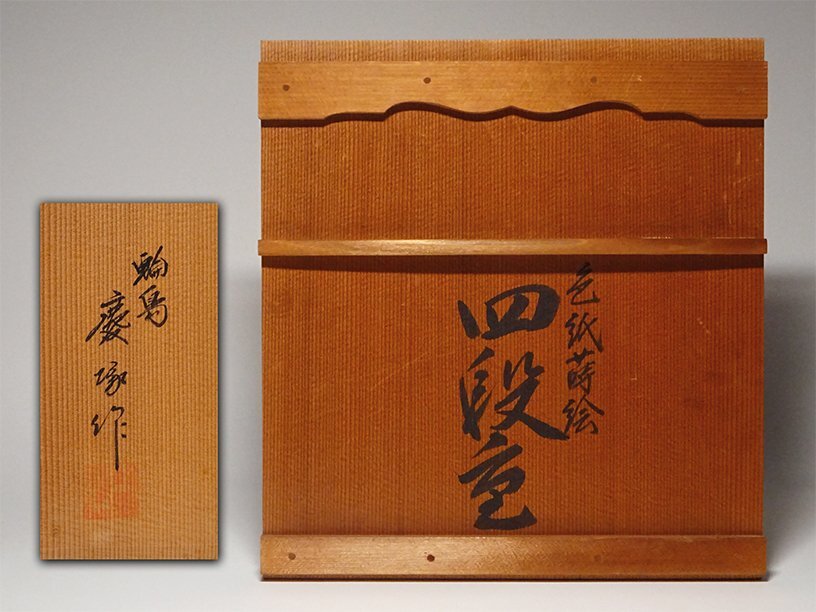 色紙蒔絵
四段重
輪島
慶塚作